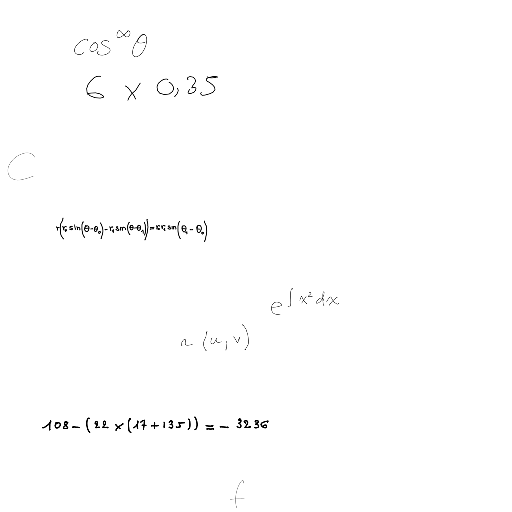 cos^∞ θ
6 × 0,35
C
r(r₀ sin(θ-θ₀)-r₁ sin(θ-θ₁))=r₀r₁ sin(θ₁-θ₀)
e^∫x²dx
r(u,v)
108-(22×(17+135))=-3236
f